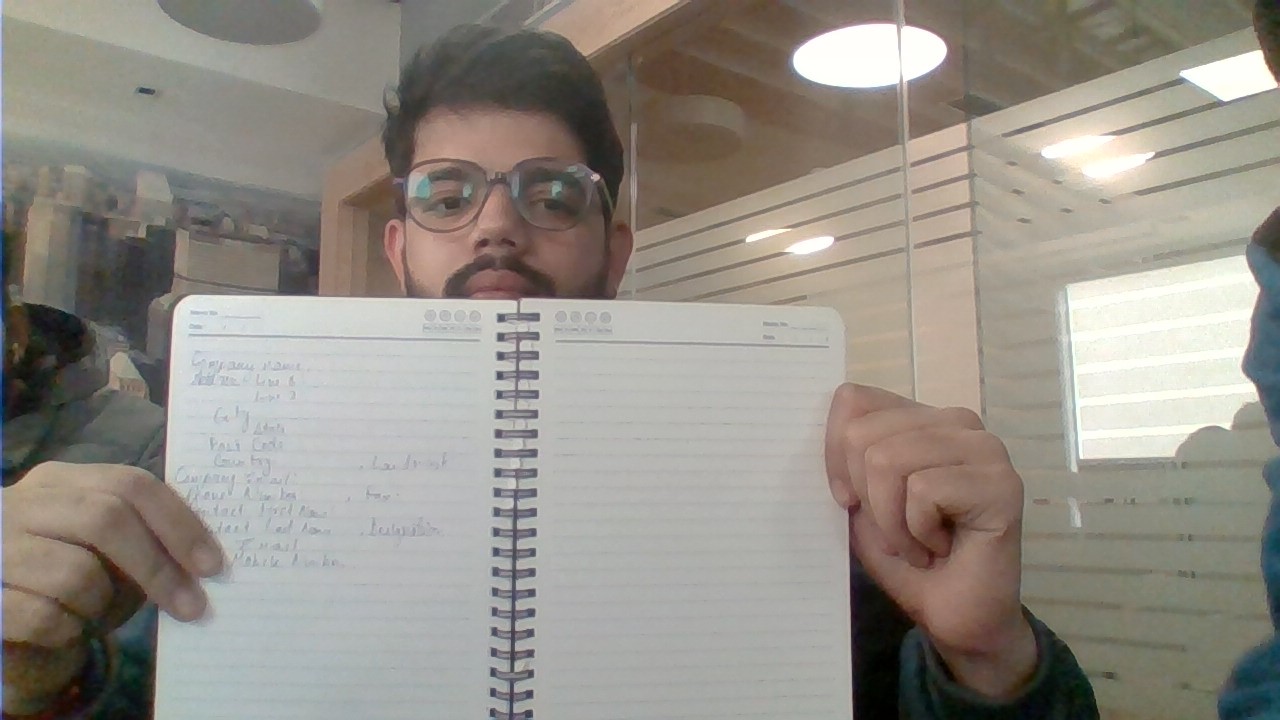 Date
Date
Company Name
Address - Line 1
Line 2
City
State
Post Code
Country . Landmark
Company Email
Phone Number . Fax
Contact First Name
Contact Last Name . Designation
Email
Mobile Number